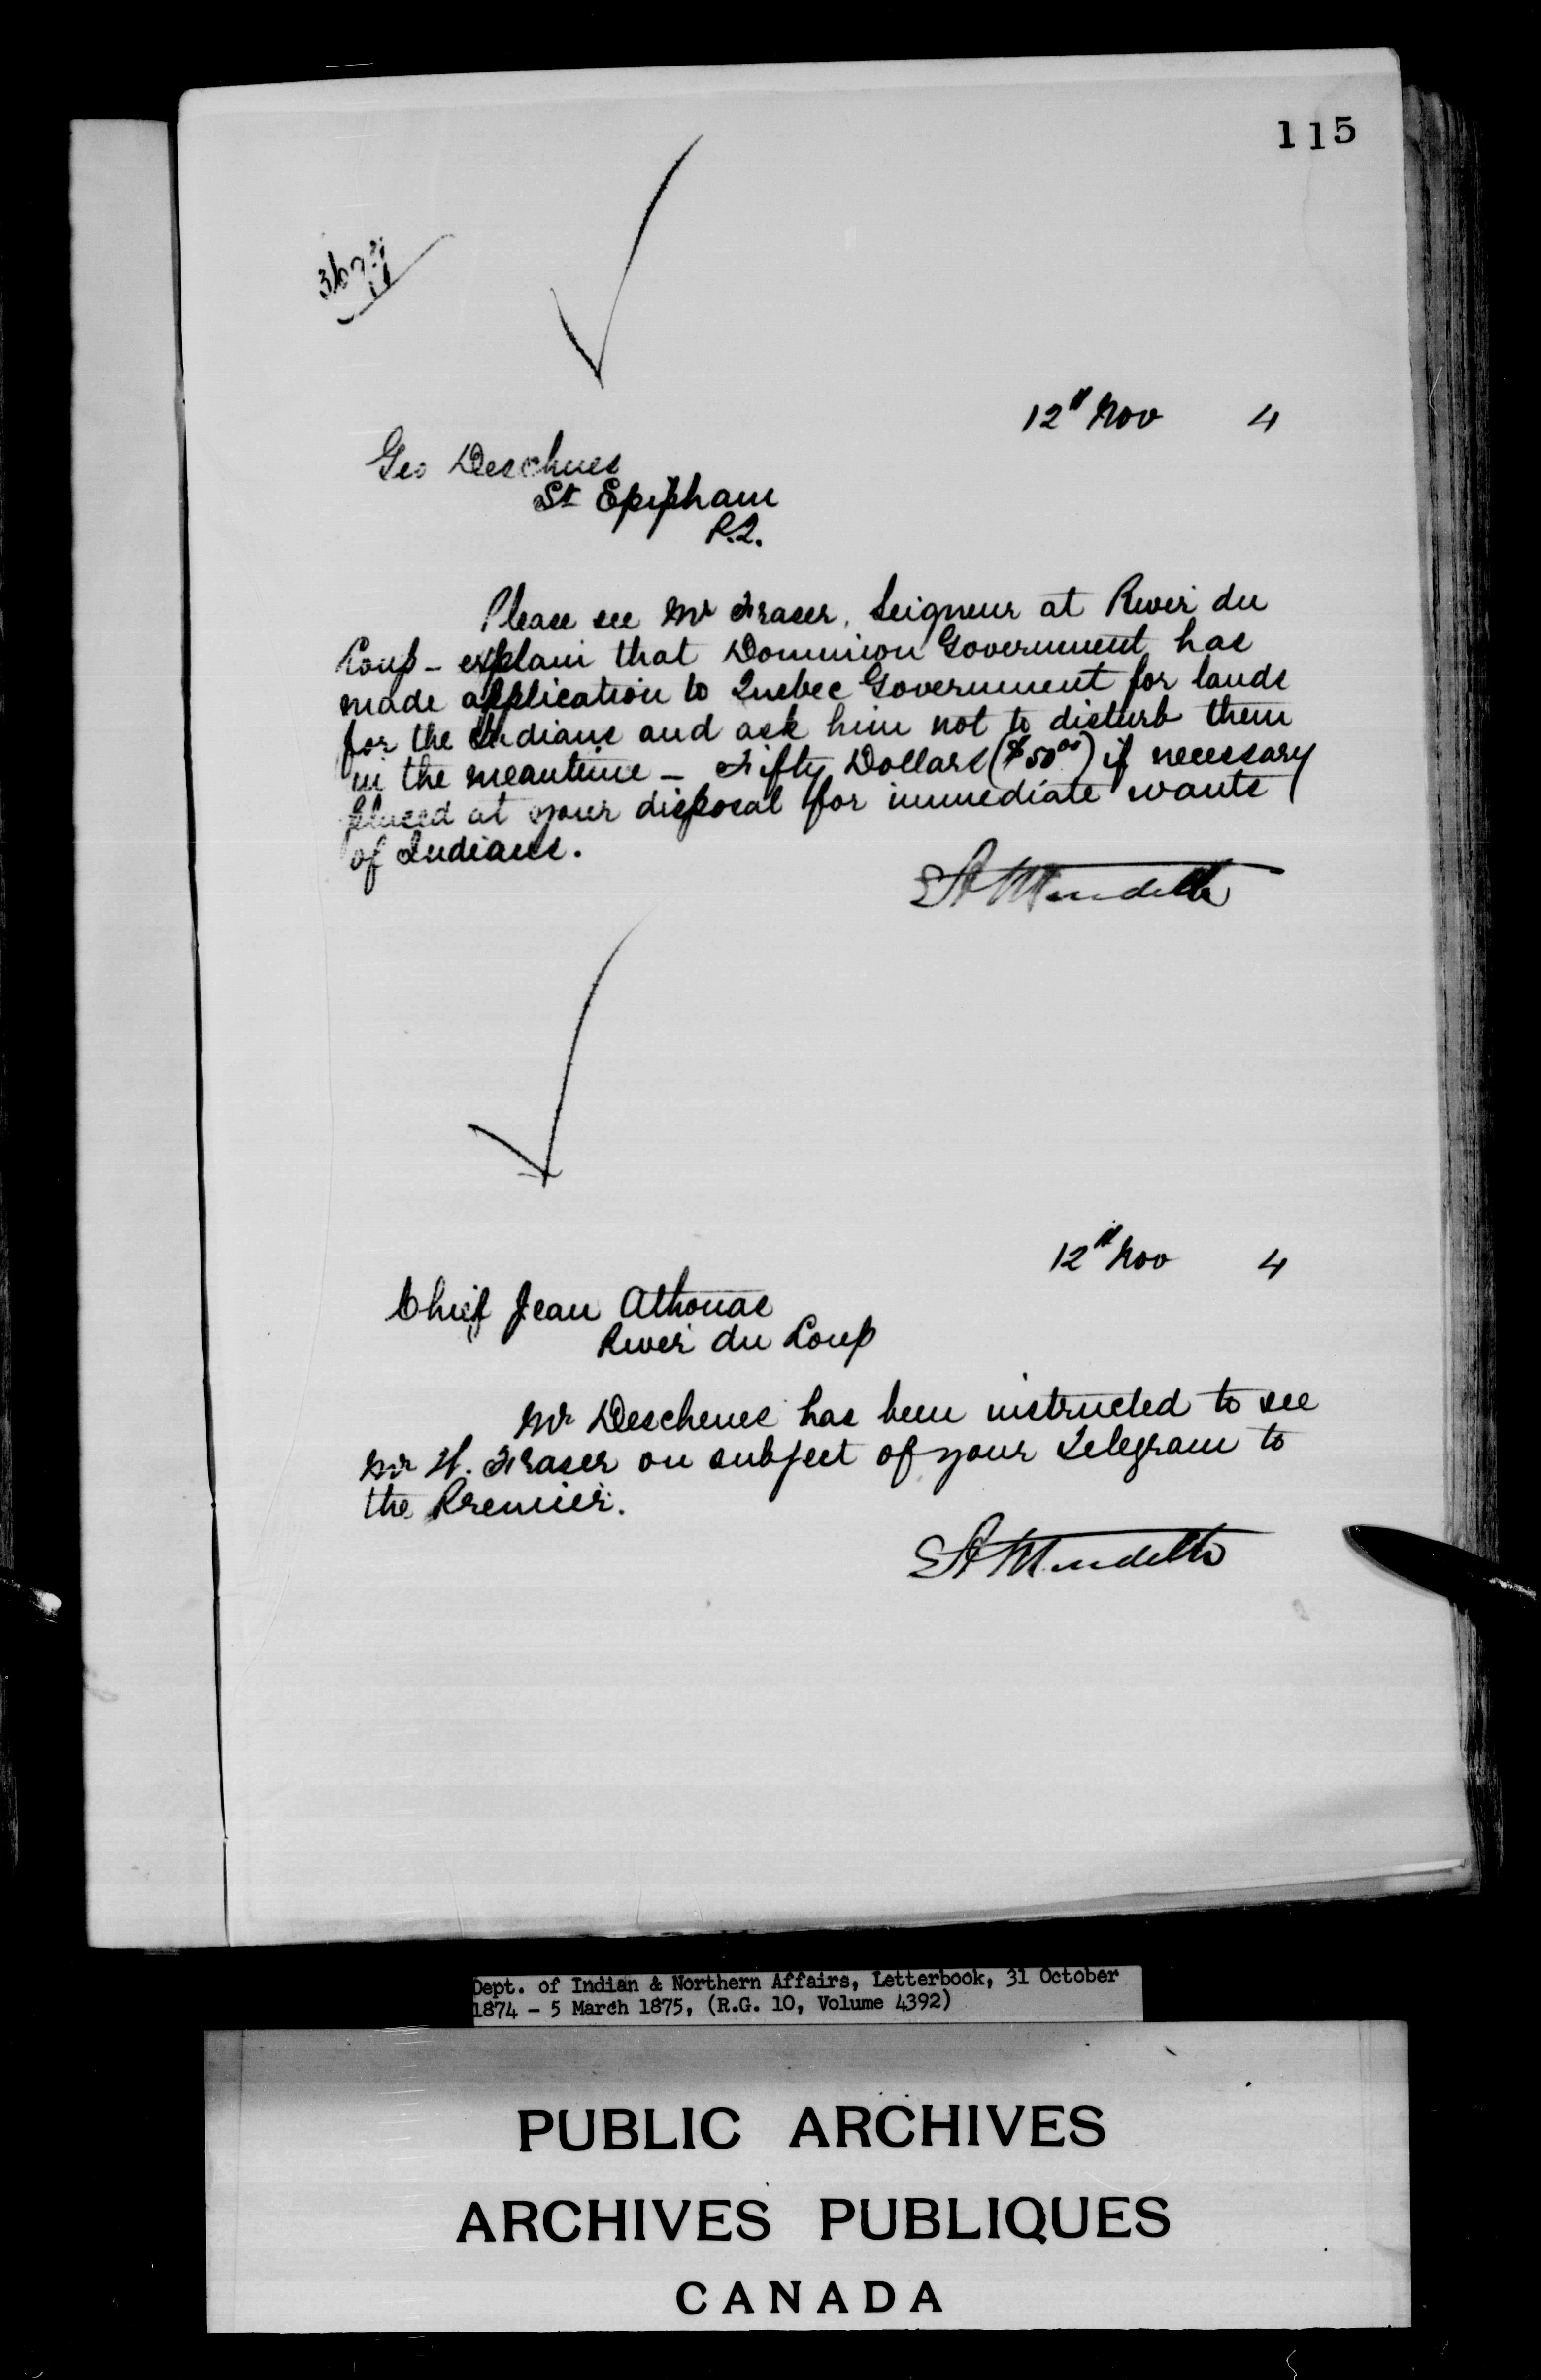 115
12" Nov 4
Geo Deschenes
St Epiphane
P.Q.
Please see Mr Fraser, Seigneur at River du
Loup - explain that Dominion Government has
made application to Quebec Government for lands
for the Indians and ask him not to disturb them
in the meantime - Fifty Dollars ($50.00) if necessary
placed at your disposal for immediate wants
of Indians.
EA Meredith
12" Nov 4
Chief Jean Athonas
River du Loup
Mr Deschenes has been instructed to see
Mr H. Fraser on subject of your Telegram to
the Premier.
EA Meredith
Dept. of Indian & Northern Affairs, Letterbook, 31 October
1874 - 5 March 1875, (R.G. 10, Volume 4392)
PUBLIC ARCHIVES
ARCHIVES PUBLIQUES
CANADA